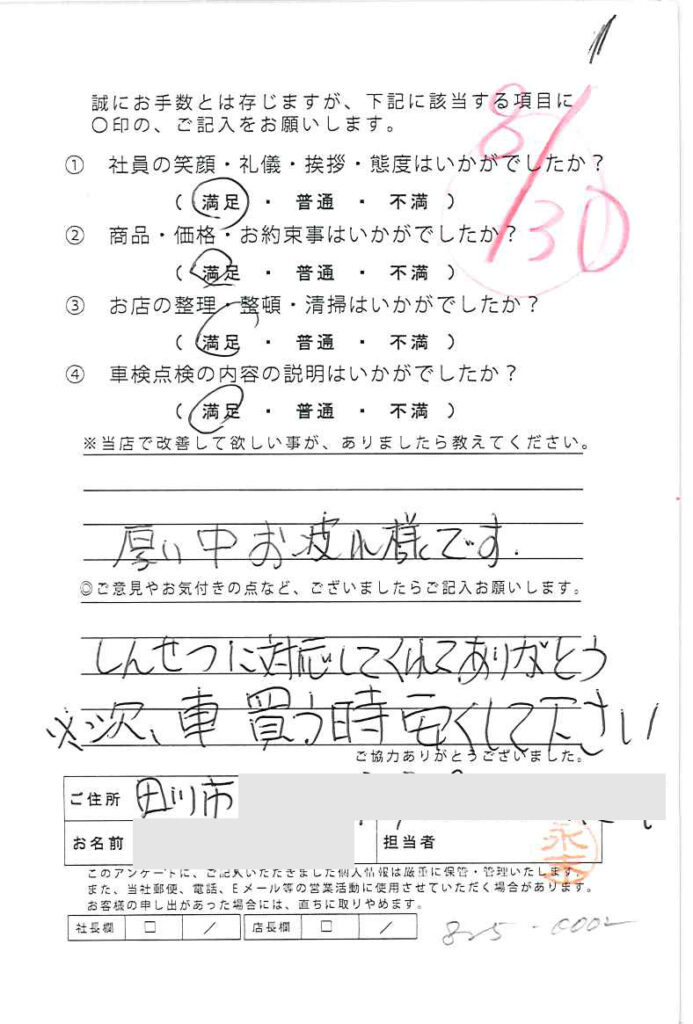 8/30
誠にお手数とは存じますが、下記に該当する項目に
〇印の、ご記入をお願いします。
① 社員の笑顔・礼儀・挨拶・態度はいかがでしたか？
( 満足 ・ 普通 ・ 不満 )
② 商品・価格・お約束事はいかがでしたか？
( 満足 ・ 普通 ・ 不満 )
③ お店の整理・整頓・清掃はいかがでしたか？
( 満足 ・ 普通 ・ 不満 )
④ 車検点検の内容の説明はいかがでしたか？
( 満足 ・ 普通 ・ 不満 )
※当店で改善して欲しい事が、ありましたら教えてください。
厚い中お疲れ様です.
◎ご意見やお気付きの点など、ございましたらご記入お願いします。
しんせつに対応してくれてありがとう
※次、車買う時安くして下さい
ご協力ありがとうございました。
ご住所 田川市
お名前 担当者
このアンケートに、ご記入いただきました個人情報は厳重に保管・管理いたします。
また、当社郵便、電話、Eメール等の営業活動に使用させていただく場合があります。
お客様の申し出があった場合には、直ちに取りやめます。
社長欄 □ / 店長欄 □ /
825-0002